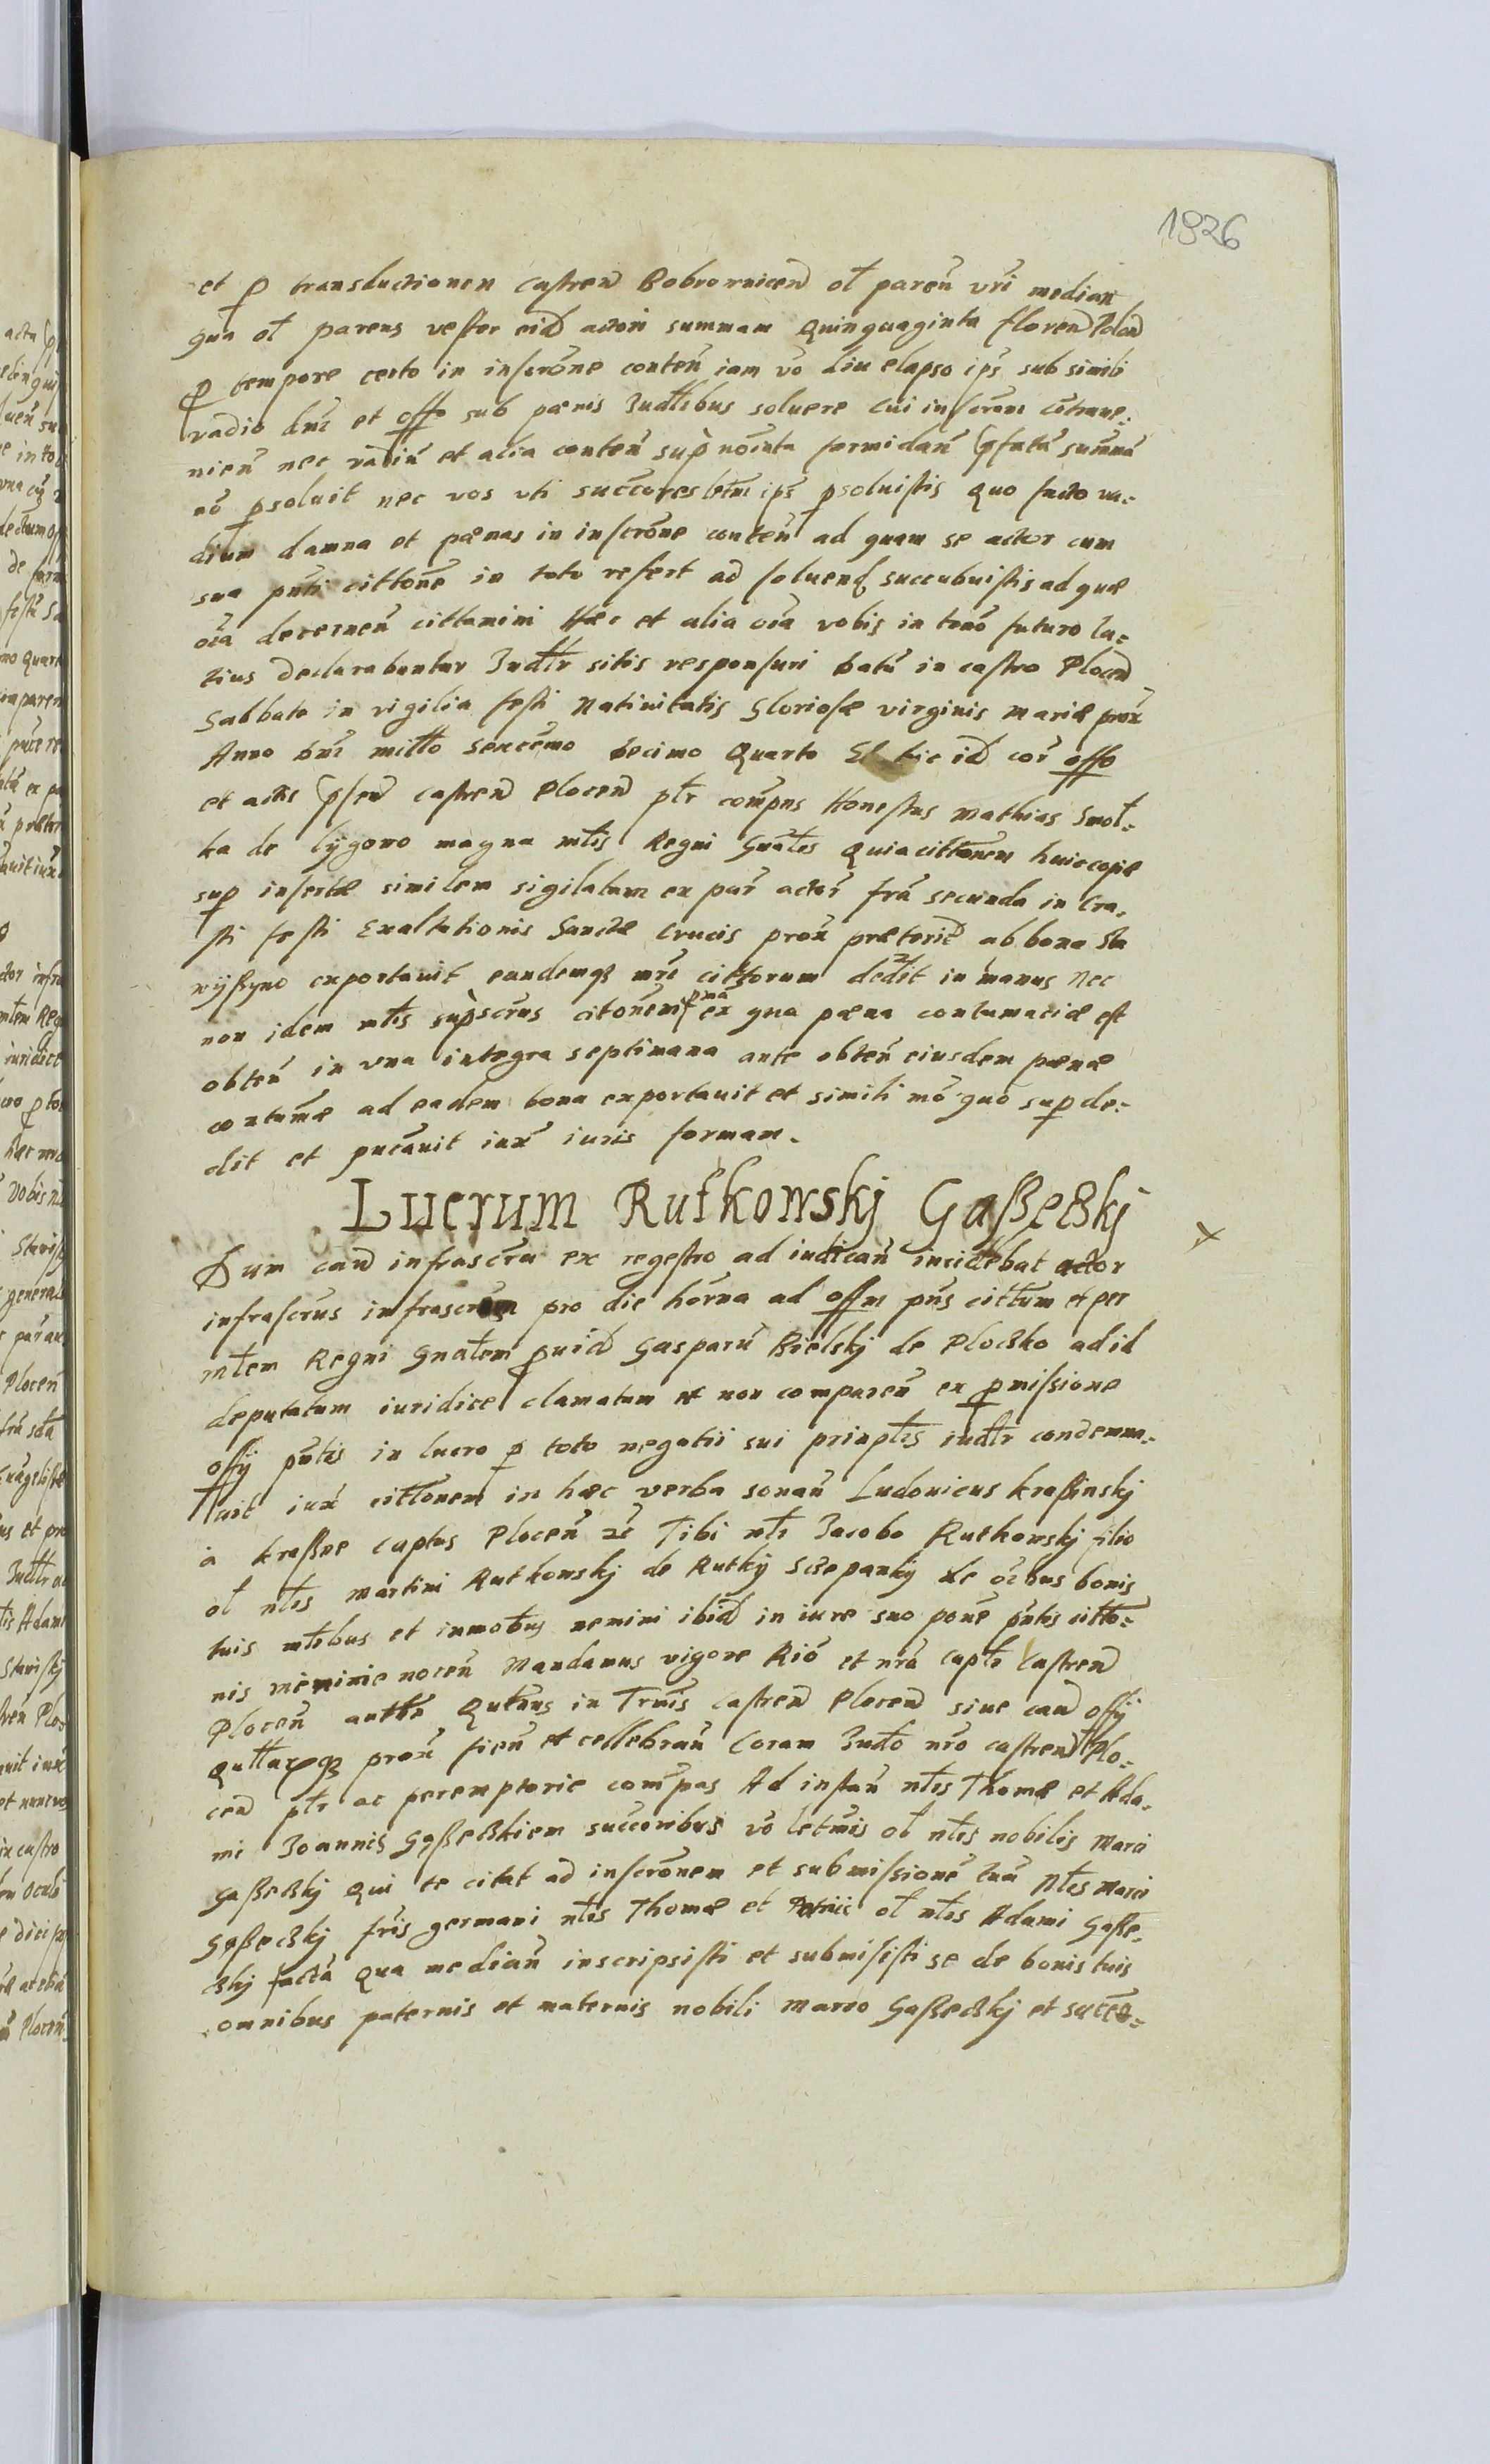 1826
et p transductionem castren Bobrownicen ol paren vri median
qua ol parens vester eid actori summam Quinquaginta floren Polon
p tempore certo in inscrone conten iam vo diu elapso ips sub simili
vadio dni et offo sub pænis Iudlibus soluere Cui inscroni cotraue=
nien nec vadiu et alia conten sup noiata formidan pfatã summã
nõ psoluit nec vos vti succores ltmi ips psoluistis Quo facto va=
dium damna et pænas in inscrone conten ad quam se actor cum
sua pnti cittone in toto refert ad soluend succubuistis ad quæ
oia decernen cittamini Hæc et alia oia vobis in tnõ futuro la=
tius declarabuntur Iudlr sitis responsuri Datu in castro Plocen
Sabbato in vigilia festi Natiuitatis Gloriosæ virginis Mariæ prox
Anno Dni millo sexcemo decimo Quarto Et hic id cor offo
et actis psen castren Plocen plr compns Honestus Mathias Smol=
ka de Lygowo magna mtis Regni Gnales Quia cittonem huic copiæ
sup insertæ similem sigilatam ex par actor fria secunda in Cra=
sti festi Exaltationis Sanctæ Crucis prox præterit ab bona Sta
exportauit eundemq mri cittorum dedit in manus Nec
non idem mtis supscrus citonem pma ex qua pæna contumaciæ est
obten in vna integra septimana ante obten eiusdem pænæ
contumæ ad eadem bona exportauit et simili mõ quo sup de=
dit et pucauit iux iuris formam.
Lucrum Rutkowskj Gaßeczkj
Dum cau infrascra ex regestro ad iudican incidebat actor
infrascrus infrascrum pro die horna ad offm pns cittum et per
mtem Regni Gnalem puid Gasparu Bielskj de Ploczko ad id
deputatum iuridice clamatum et non comparen ex pmissione
offij pntis in lucro p toto negotii sui prinplis iudlr condemna=
uit iux cittonem in hæc verba sonan Ludouicus Kraßinskj
à Kraßne Captus Plocen ze Tibi nli Iacobo Rutkowskj filio
ol nlis Martini Rutkowskj de Rutkij Sczepankij de oibus bonis
tuis mtibus et inmobus nemini ibid in iure suo pone pntis citto=
nis meminie nocen Mandamus vigore Rio et nra Captr Castren
Plocen autte Qutenus in Trnis Castren Plocen siue cau offij
Quttarqq prox fien et cellebran Coram Iudo nro castren Plo=
cen plr ac peremptorie compas Ad instan nlis Thomæ et Ada=
mi Ioannis Gąßeczkiem succoribus vo letmis ol nlis nobilis Marci
Gaßeczkj Qui te citat ad inscronem et submissione tua Nlis Marci
Gąßeczkj fris germani nlis Thomæ et Patrui ol nlis Adami Gaße=
czkj factã Qua median inscripsisti et submisisti se de bonis tuis
omnibus paternis et maternis nobili Marco Gaßeczkj et succo=